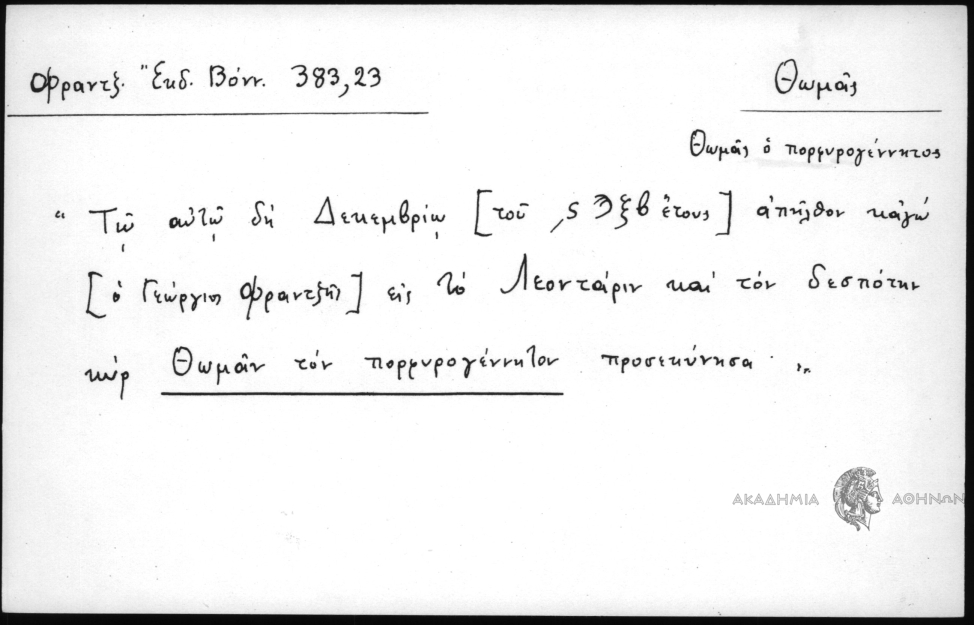 Φραντζ. Ἔκδ. Βόνν. 383,23
Θωμᾶς
Θωμᾶς ὁ πορφυρογέννητος
"Τῷ αὐτῷ δὴ Δεκεμβρίῳ [τοῦ ͵ϛϠξβ ἔτους] ἀπῆλθον κἀγώ
[ὁ Γεώργιος Φραντζῆς] εἰς τὸ Λεοντάριν καὶ τὸν δεσπότην
κὺρ Θωμᾶν τὸν πορφυρογέννητον προσεκύνησα ..
ΑΚΑΔΗΜΙΑ ΑΘΗΝΩΝ